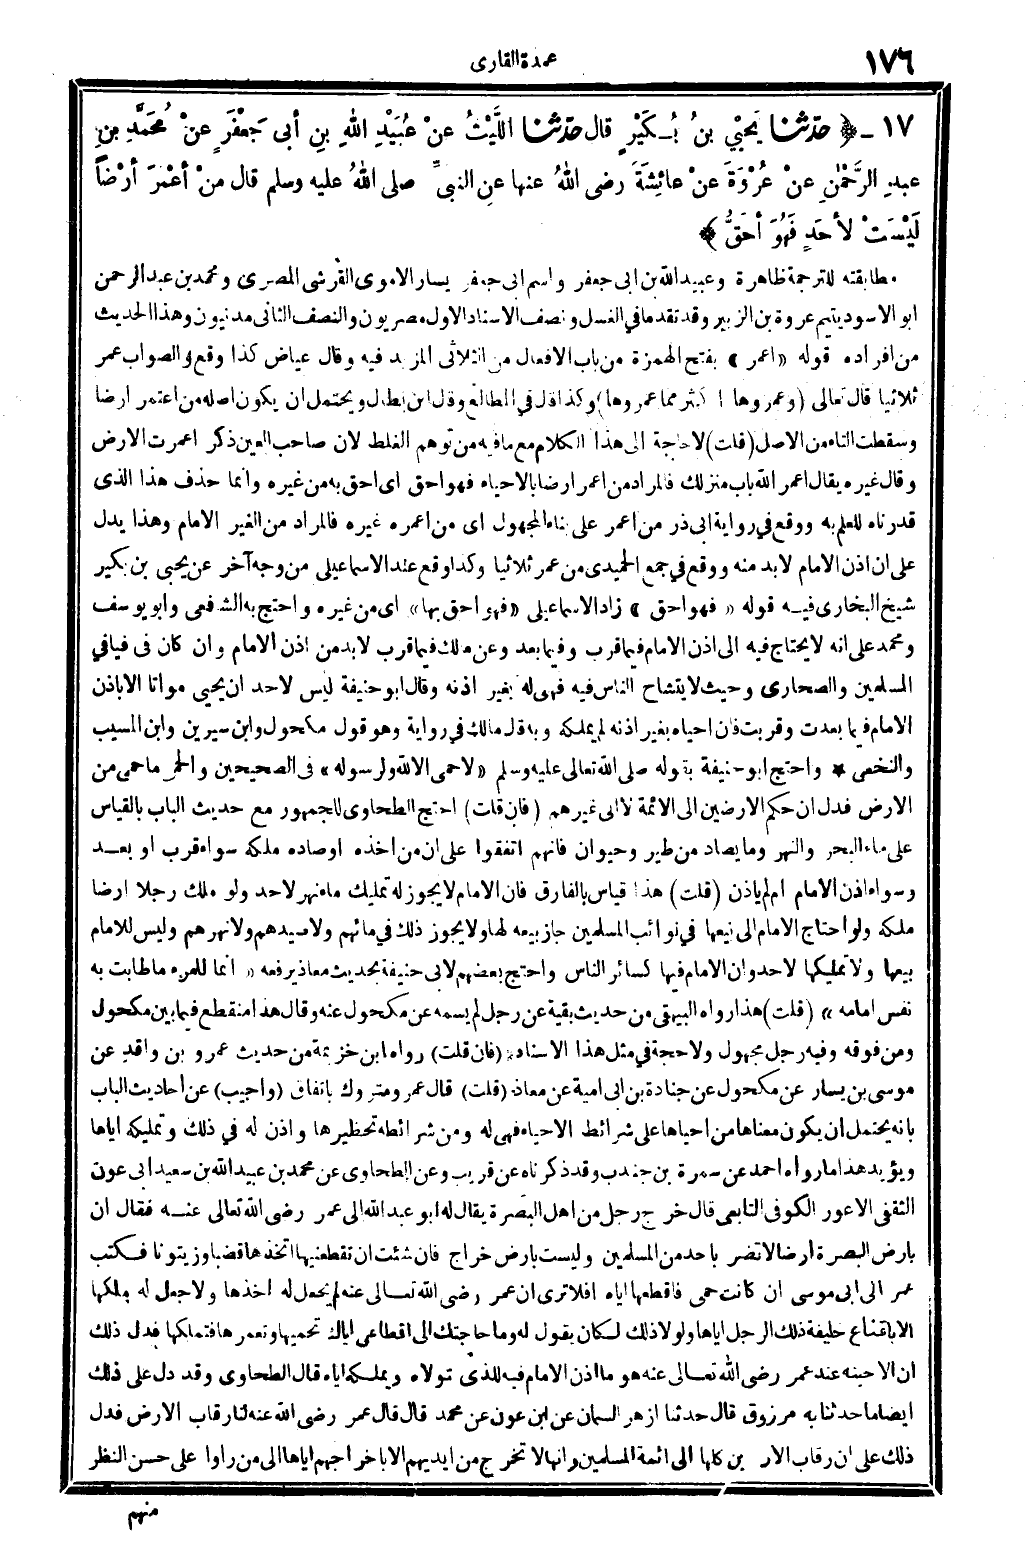 ١٧٦
عمدة القارى
١٧ ـ ﴿ حَدَّثَنَا يَحْيَي بنُ بُـكَيْرٍ قال حَدَّثَنَا اللَّيْثُ عنْ عُبَيْدِ اللهِ بنِ أبى جَعْفَرٍ عنْ مُحَمَّدِ بنِ
عبدِ الرَّحْمٰنِ عنْ عُرْوَةَ عنْ عائِشَةَ رضى اللهُ عنها عنِ النبىِّ صلى اللهُ عليه وسلم قال منْ أعْمَرَ أرْضاً
لَيْسَتْ لأحَدٍ فَهُوَ أحَقُّ ﴾
مطابقته للترجمة ظاهرة وعبيدالله بن ابى جعفر واسم ابى جعفر يسار الاموى القرشى المصرى ومحمد بن عبدالرحمن
ابو الاسود يتيم عروة بن الزبير وقد تقدما في الغسل ونصف الاسناد الاول مصريون والنصف الثانى مدنيون وهذا الحديث
من افراده قوله «اعمر» بفتح الهمزة من باب الافعال من الثلاثى المزيد فيه وقال عياض كذا وقع والصواب عمر
ثلاثيا قال تعالى (وعمروها اكثر مما عمروها) وكذا قال في المطالع وقال ابن بطال ويحتمل ان يكون اصله من اعتمر ارضا
وسقطت التاء من الاصل (قلت) لاحاجة الى هذا الكلام مع مافيه من توهم الغلط لان صاحب العين ذكر اعمرت الارض
وقال غيره يقال اعمر الله باب منزلك فالمراد من اعمر ارضا بالاحياء فهو احق اى احق به من غيره وانما حذف هذا الذى
قدرناه للعلم به ووقع في رواية ابى ذر من اعمر على بناء المجهول اى من اعمره غيره فالمراد من الغير الامام وهذا يدل
على ان اذن الامام لابد منه ووقع في جمع الحميدى من عمر ثلاثيا وكذا وقع عند الاسماعيلى من وجه آخر عن يحيى بن بكير
شيخ البخارى فيـه قوله «فهو احق» زاد الاسماعيلى «فهو احق بها» اى من غيره واحتج به الشافعى وابو يوسف
ومحمد على انه لايحتاج فيه الى اذن الامام فيما قرب وفيما بعد وعن مالك فيما قرب لابد من اذن الامام وان كان فى فيافي
المسلمين والصحارى وحيث لايتشاح الناس فيه فهى له بغير اذنه وقال ابو حنيفة ليس لاحد ان يحيي مواتا الا باذن
الامام فيما بعدت وقربت فان احياه بغير اذنه لم يملكه وبه قال مالك في رواية وهو قول مكحول وابن سيرين وابن المسيب
والنخعى * واحتج ابو حنيفة بقوله صلى الله تعالى عليه وسلم «لاحمى الا لله ولرسوله» فى الصحيحين والحمر ماحمى من
الارض فدل ان حكم الارضين الى الائمة لا الى غيرهم (فان قلت) احتج الطحاوى للجمهور مع حديث الباب بالقياس
على ماء البحر والنهر وما يصاد من طير وحيوان فانهم اتفقوا على ان من اخذه اوصاده ملكه سواء قرب او بعـد
وسواء اذن الامام ام لم ياذن (قلت) هذا قياس بالفارق فان الامام لايجوز له تمليك ماء نهر لاحد ولو ملك رجلا ارضا
ملكه ولو احتاج الامام الى بيعها في نوائب المسلمين جاز بيعه لها ولا يجوز ذلك في مائهم ولاصيدهم ولا نهرهم وليس للامام
بيعها ولا تمليكها لاحد وان الامام فيها كسائر الناس واحتج بعضهم لابى حنيفة بحديث معاذ يرفعه «انما للمرء ماطابت به
نفس امامه» (قلت) هذا رواه البيهقى من حديث بقية عن رجل لم يسمه عن مكحول عنه وقال هذا منقطع فيما بين مكحول
ومن فوقه وفيه رجل مجهول ولاحجة في مثل هذا الاسناد* (فان قلت) رواه ابن خزيمة من حديث عمرو بن واقد عن
موسى بن يسار عن مكحول عن جنادة بن ابى امية عن معاذ (قلت) قال عمرو متروك باتفاق (واجيب) عن احاديث الباب
بانه يحتمل ان يكون معناها من احياها على شرائط الاحياء فهى له ومن شرائطه تحظيرها واذن له في ذلك وتمليكه اياها
ويؤيد هذا مارواه احمد عن سمرة بن جندب وقد ذكرناه عن قريب وعن الطحاوى عن محمد بن عبيد الله بن سعيد ابى عون
الثقفى الاعور الكوفى التابعى قال خرج رجل من اهل البصرة يقال له ابو عبد الله الى عمر رضى الله تعالى عنـه فقال ان
بارض البصرة ارضا لاتضر باحد من المسلمين وليست بارض خراج فان شئت ان تقطعنيها اتخذها قضبا وزيتونا فكتب
عمر الى ابى موسى ان كانت حمى فاقطعها اياه افلا ترى ان عمر رضى الله تعـالى عنه لم يجعل له اخذها ولا جعل له ملكها
الا باقطاع خليفة ذلك الرجل اياها ولولا ذلك لكان يقول له وما حاجتك الى اقطاعى اياك تحميها وتعمرها فتملكها فدل ذلك
ان الاحياء عند عمر رضى الله تعـالى عنه هو ما اذن الامام فيه للذى تولاه ويملكه اياه قال الطحاوى وقد دل على ذلك
ايضا ماحدثنا به مرزوق قال حدثنا ازهر السمان عن ابن عون عن محمد قال قال عمر رضى الله عنه لنا رقاب الارض فدل
ذلك على ان رقاب الارضين كلها الى ائمة المسلمين وانها لاتخرج من ايديهم الا باخراجهم اياها الى من راوا على حسن النظر
منهم